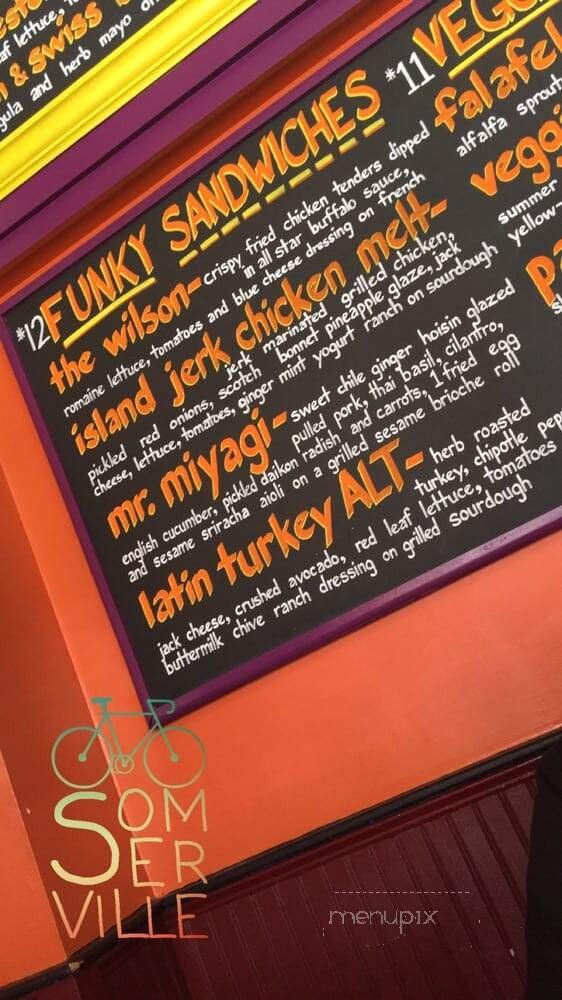 af lettuce,
& swiss
gula and herb mayo on
#12 FUNKY SANDWICHES
the wilson- crispy fried chicken tenders dipped
in all star buffalo sauce,
romaine lettuce, tomatoes and blue cheese dressing on french
island jerk chicken melt-
jerk marinated, grilled chicken,
pickled red onions, scotch bonnet pineapple glaze, jack
cheese, lettuce, tomatoes, ginger mint yogurt ranch on sourdough
mr. miyagi- sweet chile ginger hoisin glazed
pulled pork, thai basil, cilantro,
english cucumber, pickled daikon radish and carrots, 1 fried egg
and sesame sriracha aioli on a grilled sesame brioche roll
latin turkey ALT- herb roasted
turkey, chipotle pep
jack cheese, crushed avocado, red leaf lettuce, tomatoes
buttermilk chive ranch dressing on grilled sourdough
#11 VEGG
falafel
alfalfa sprout
veggi
summer
yellow
pa
SOM
ER
VILLE
menupix